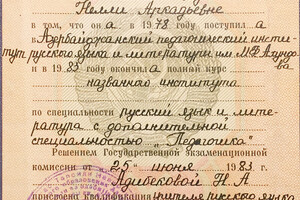 Нелли Аркадьевне
в том, что он а в 19 78 году поступил а
в Азербайджанский педагогический инсти-
тут русского языка и литературы им. М.Ф.Ахундова
и в 19 83 году окончил а полный курс
названного института
по специальности русский язык и лите-
ратура с дополнительной
специальностью „Педагогика“.
Решением Государственной Экзаменационной
комиссии от „25“ июня 1983 г.
Адибековой Н.А
присвоена квалификация учителя русского языка